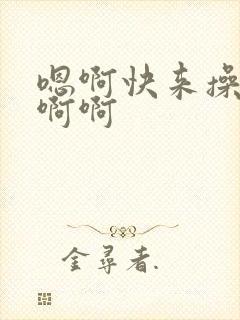 嗯啊快来操
啊啊
金寻者.